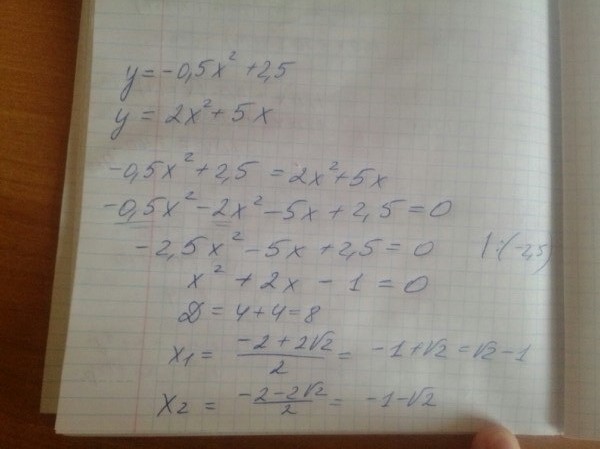 y = -0,5x² + 2,5
y = 2x² + 5x
-0,5x² + 2,5 = 2x² + 5x
-0,5x² - 2x² - 5x + 2,5 = 0
-2,5x² - 5x + 2,5 = 0 | : (-2,5)
x² + 2x - 1 = 0
D = 4 + 4 = 8
x₁ = (-2 + 2√2)/2 = -1 + √2 = √2 - 1
x₂ = (-2 - 2√2)/2 = -1 - √2